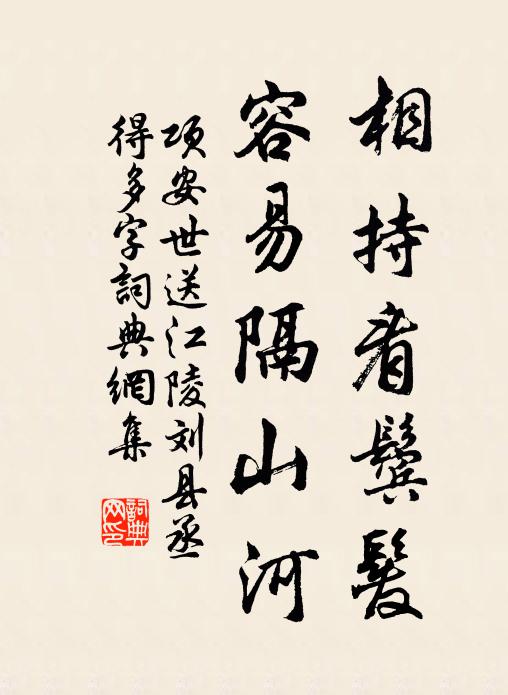 相持看鬓髮
容易隔山河
项安世送江陵刘县丞
得多字詞典網集
詞典
网印